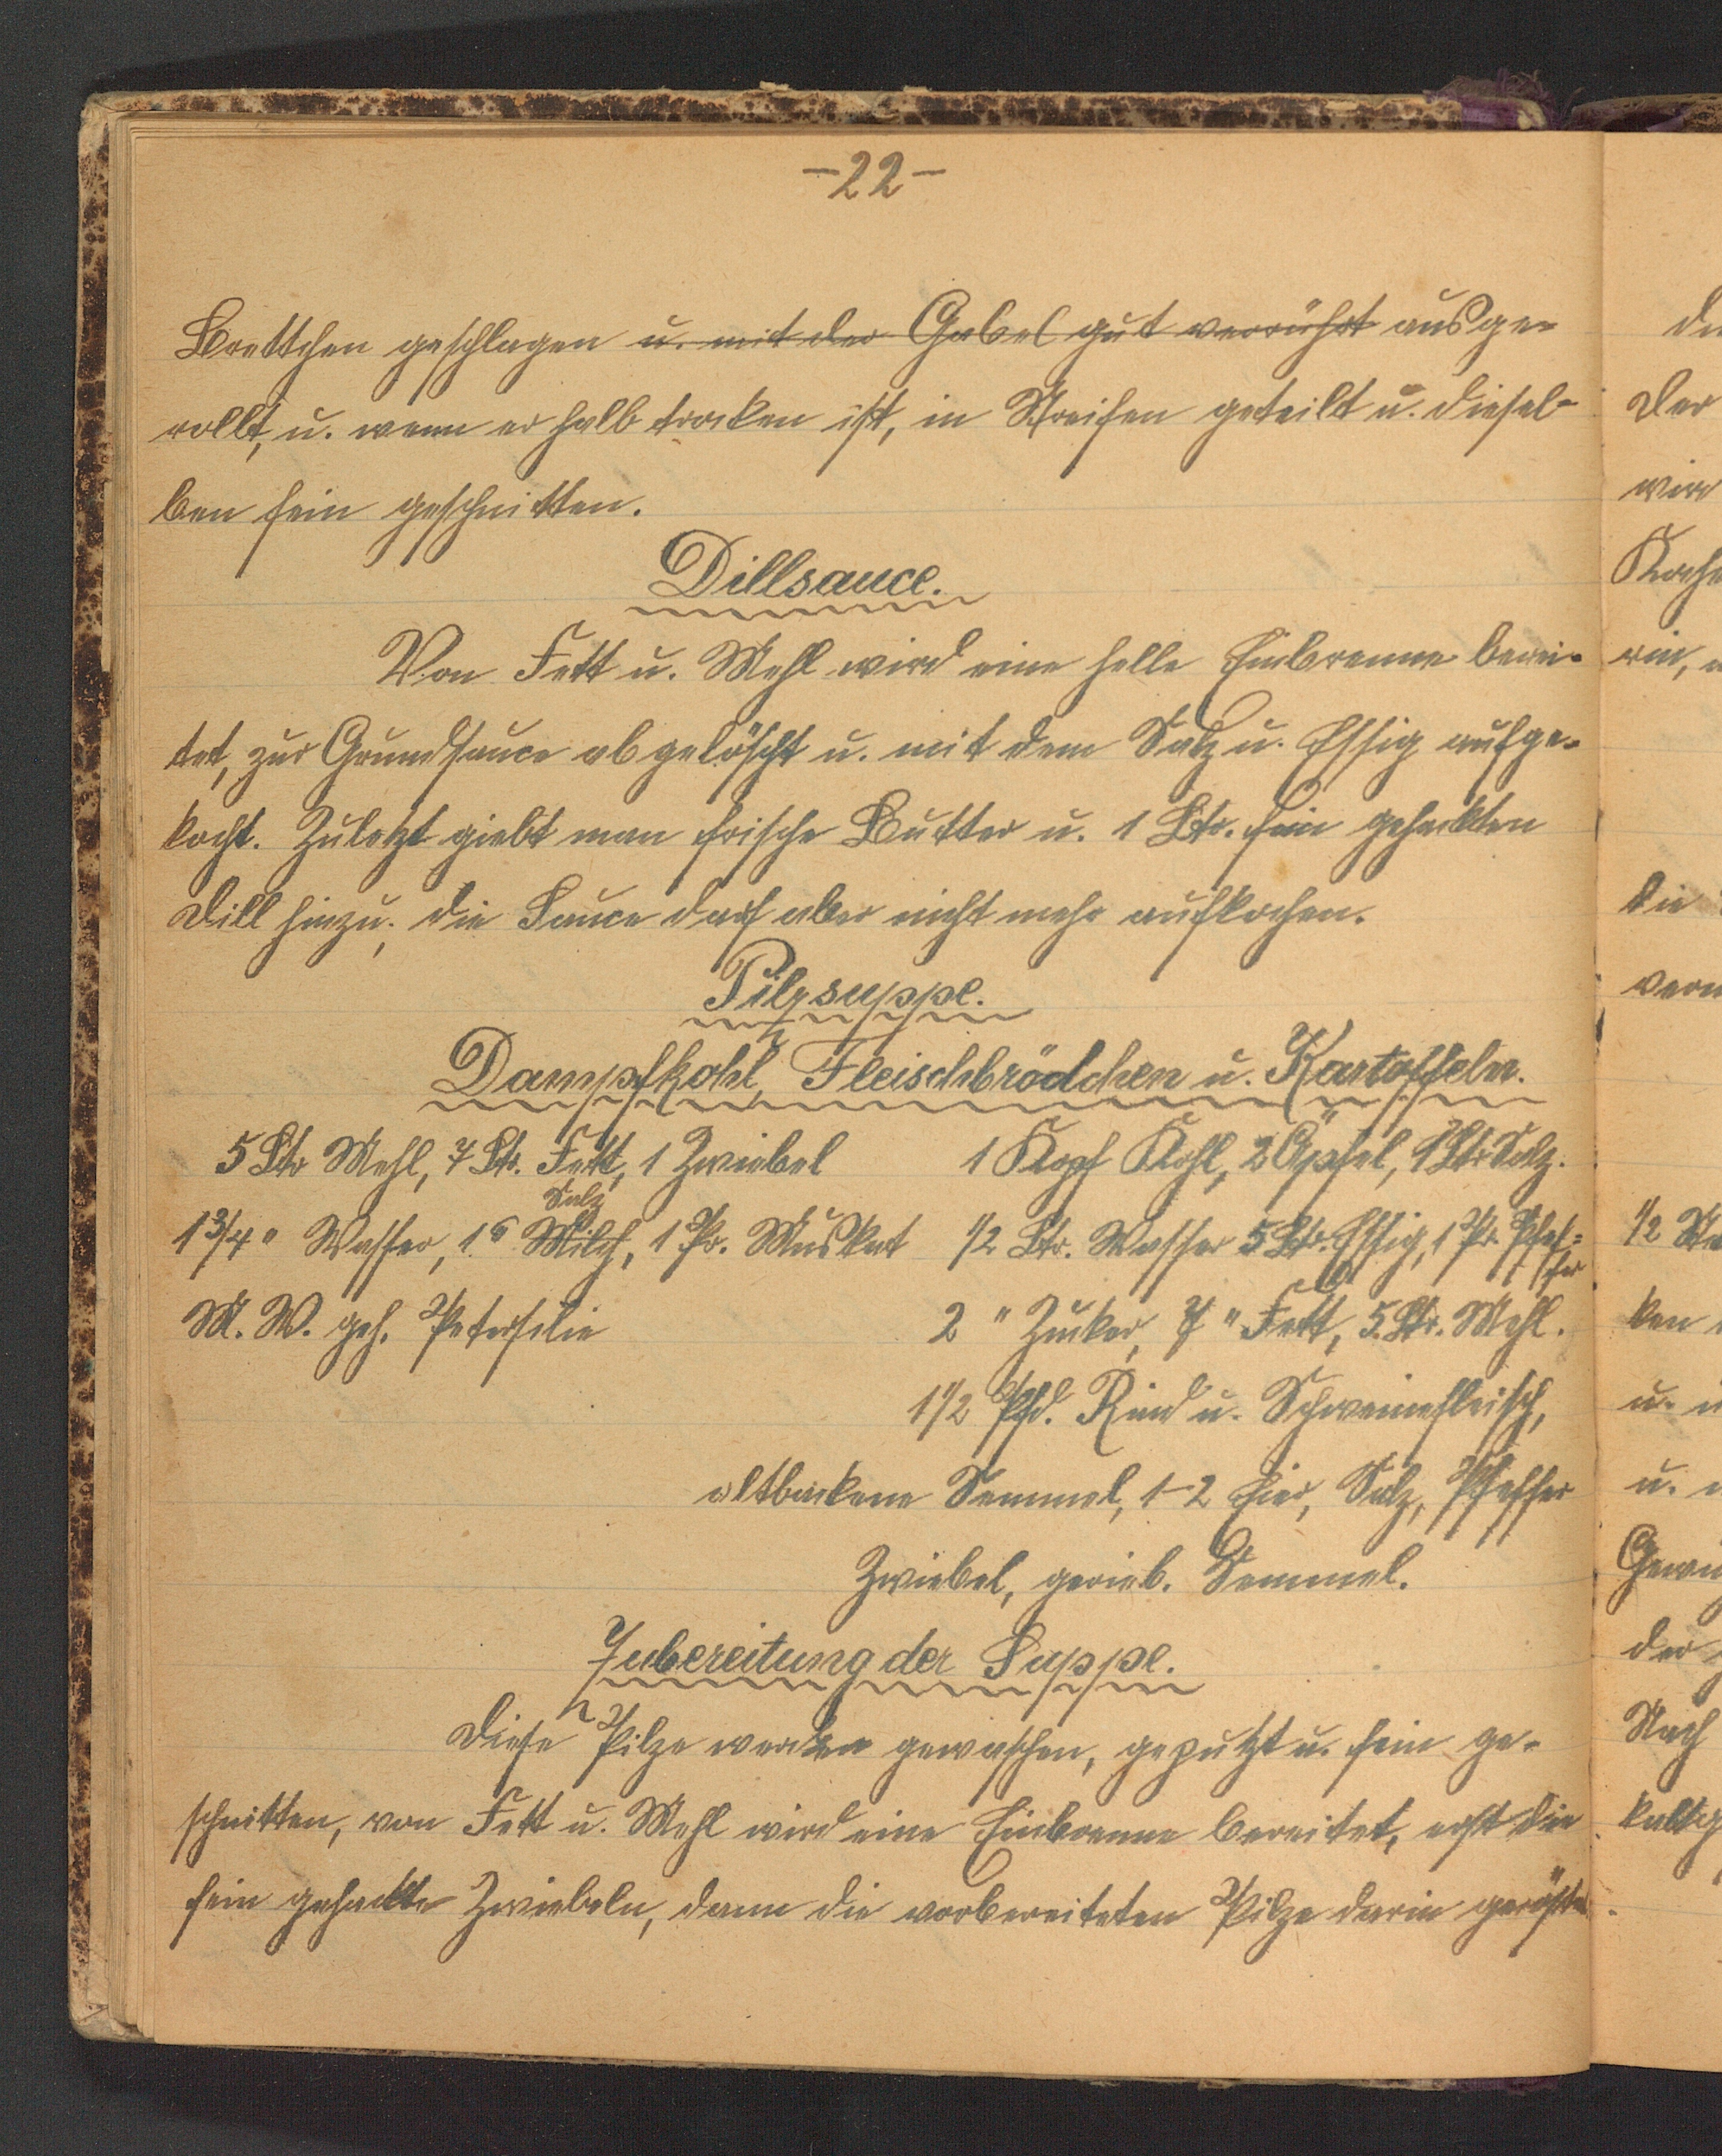 -22-
Brettchen geschlagen u. mit der Gabel gut verrührt ausge-
rollt, u. wenn er halb trocken ist, in Streifen geteilt u. diesel-
ben fein geschnitten.
Dillsauce.
Von Fett u. Mehl wird eine helle Einbrenne berei-
tet, zur Grundsauce abgelöscht u. mit dem Salz u. Essig aufge-
kocht. Zuletzt giebt man frische Butter u. 1 Ltr. fein gehackten
Dill hinzu; die Sauce darf aber nicht mehr aufkochen.
Pilzsuppe.
Dampfkohl, Fleischbrödchen u. Kartoffeln.
5 Ltr Mehl, 7 Ltr. Fett, 1 Zwiebel
1 3/4 " Wasser, 1 " Milch, 1 Pr. Muskat
Salz
M. W. geh. Petersilie
1 Kopf Kohl, 2 Äpfel, 1 Ltr Salz.
1/2 Ltr. Wasser 5 Ltr. Essig, 1 Pr. Pfef=
fer
2 " Zucker, 7 " Fett, 5 Ltr. Mehl.
1 1/2 Pfd. Rind u. Schweinefleisch,
altbackene Semmel, 1-2 Eier, Salz, Pfeffer
Zwiebel, gerieb. Semmel.
Zubereitung der Suppe.
Diese Pilze werden gewaschen, geputzt u. fein ge-
schnitten, von Fett u. Mehl wird eine Einbrenne bereitet, erst die
fein gehackte Zwiebeln, dann die vorbereiteten Pilze darin geröstet
der
wird
Koche
ein,
die
1/2
ken
u.
u.
der
Nach